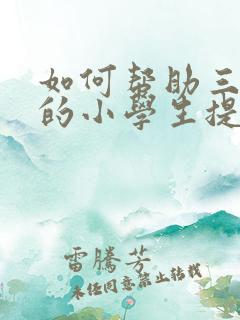 如何帮助三
的小學生提
雷騰芳
未经同意禁止转载